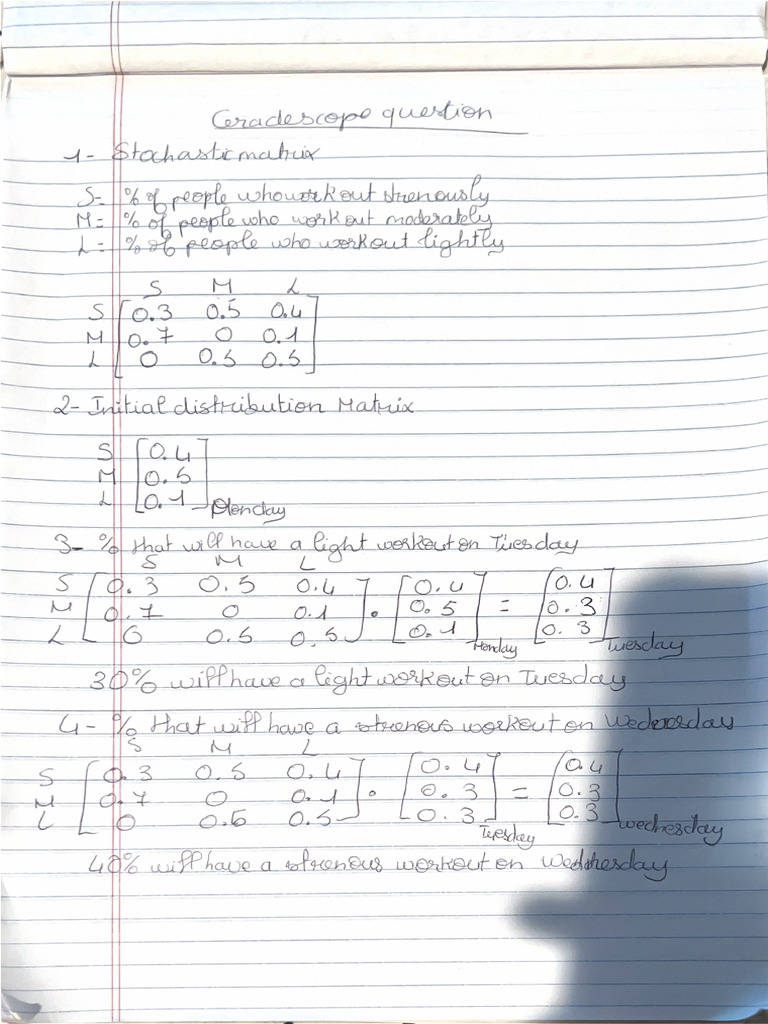 Gradescope question
1- Stochastic matrix
S= % of people who workout strenously
M= % of people who workout moderately
L= % of people who workout lightly
S M L
S [0.3 0.5 0.4
M 0.7 0 0.1
L 0 0.5 0.5]
2- Initial distribution Matrix
S [0.4
M 0.5
L 0.1] Monday
3- % that will have a light workout on Tuesday
S M L
S [0.3 0.5 0.4] [0.4] [0.4]
M 0.7 0 0.1 . 0.5 = 0.3
L 0 0.5 0.5 0.1 0.3
Monday Tuesday
30% will have a light workout on Tuesday
4- % that will have a strenous workout on Wednesday
S M L
S [0.3 0.5 0.4] [0.4] [0.4]
M 0.7 0 0.1 . 0.3 = 0.3
L 0 0.5 0.5 0.3 0.3
Tuesday Wednesday
40% will have a strenous workout on Wednesday